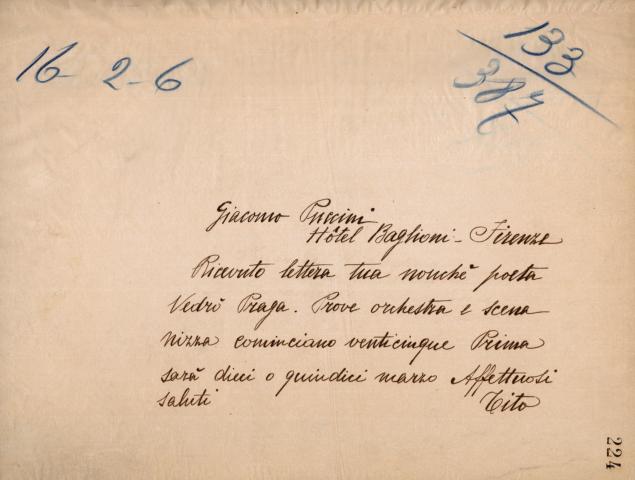 16- 2-6
133
387
Giacomo Puccini
Hôtel Baglioni - Firenze
Ricevuto lettera tua nonchè poeta
Vedrò Praga. Prove orchestra e scena
Nizza cominciano venticinque Prima
sarà dieci o quindici marzo Affettuosi
saluti Tito
224